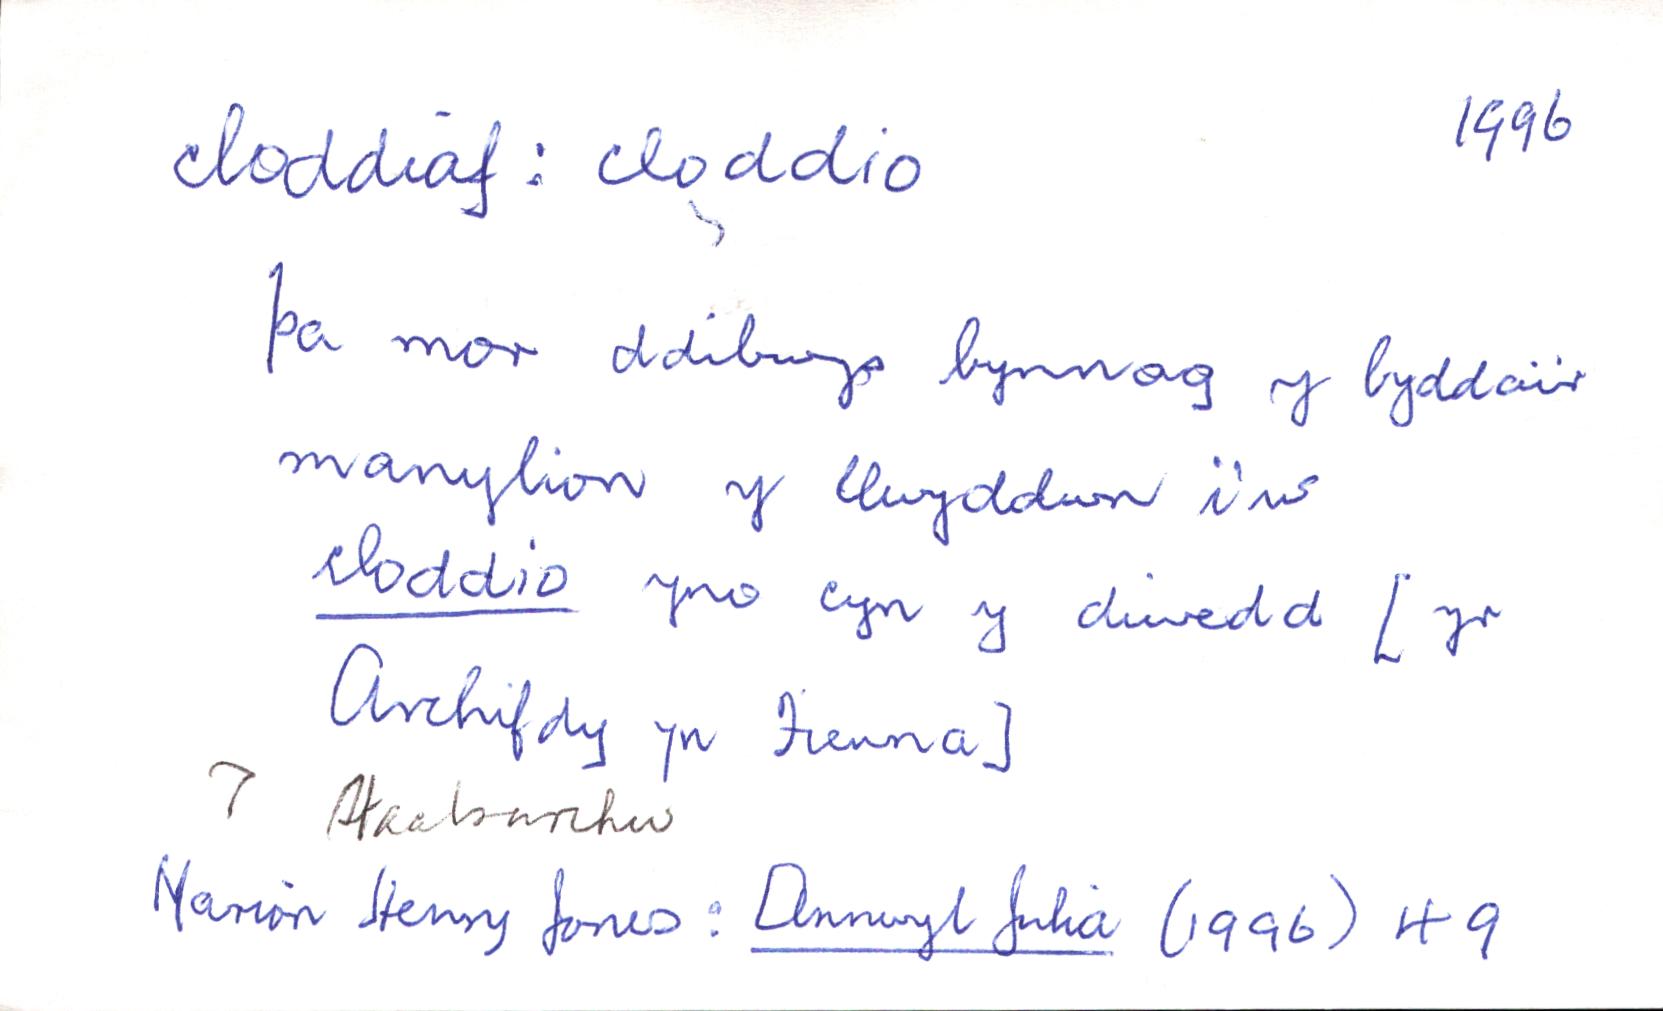 cloddiaf: cloddio 1996
pa mor ddibwys bynnag y byddai'r
manylion y llwyddwn i'w
cloddio yno cyn y diwedd [yr
Archifdy yn Fienna]
? Staatsarchiv
Marion Henry Jones: Annwyl Julia (1996) 49